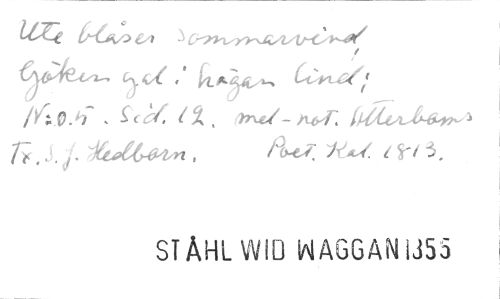 Ute blåser sommarvind,
Göken gal i högan lind;
N:o.5. Sid. 12. mel-not. Atterboms
Tx. S. J. Hedborn. Poet. Kal. 1813.
STÅHL WID WAGGAN 1855